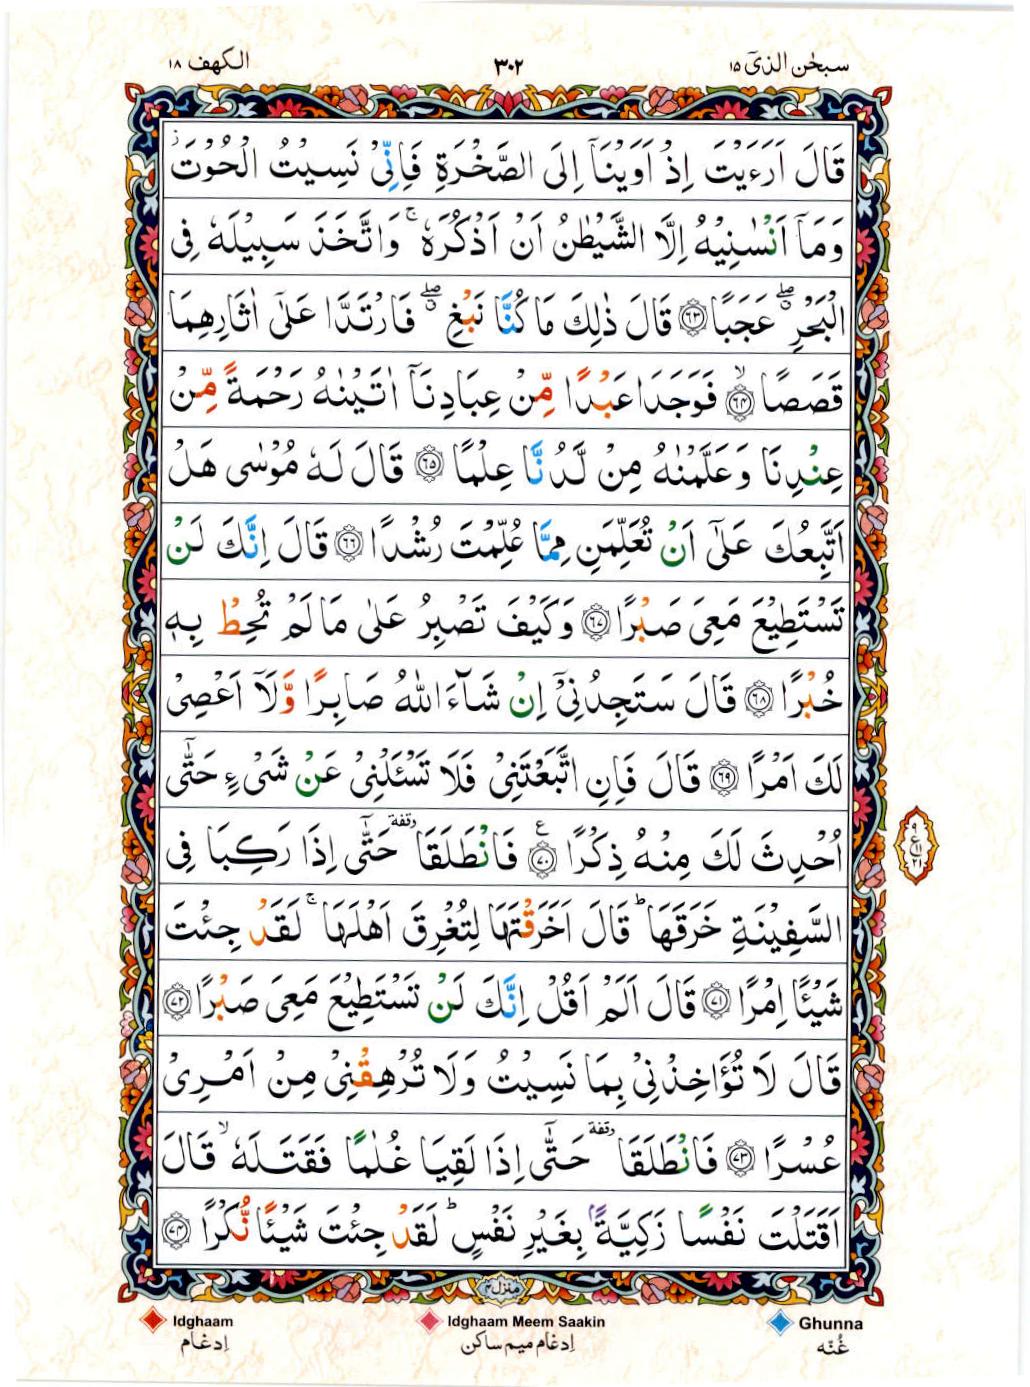 سبحٰن الذیٓ ۱۵
۳۰۲
الكهف ۱۸
قَالَ اَرَءَیْتَ اِذْ اَوَیْنَاۤ اِلَی الصَّخْرَةِ فَاِنِّیْ نَسِیْتُ الْحُوْتَ ؗ
وَمَاۤ اَنْسٰىنِیْهُ اِلَّا الشَّیْطٰنُ اَنْ اَذْكُرَهٗ ۚ وَاتَّخَذَ سَبِیْلَهٗ فِی
الْبَحْرِ ۖۗ عَجَبًا ﴿۶۳﴾ قَالَ ذٰلِكَ مَا كُنَّا نَبْغِ ۖۗ فَارْتَدَّا عَلٰۤی اٰثَارِهِمَا
قَصَصًا ۙ﴿۶۴﴾ فَوَجَدَا عَبْدًا مِّنْ عِبَادِنَاۤ اٰتَیْنٰهُ رَحْمَةً مِّنْ
عِنْدِنَا وَعَلَّمْنٰهُ مِنْ لَّدُنَّا عِلْمًا ﴿۶۵﴾ قَالَ لَهٗ مُوْسٰی هَلْ
اَتَّبِعُكَ عَلٰۤی اَنْ تُعَلِّمَنِ مِمَّا عُلِّمْتَ رُشْدًا ﴿۶۶﴾ قَالَ اِنَّكَ لَنْ
تَسْتَطِیْعَ مَعِیَ صَبْرًا ﴿۶۷﴾ وَكَیْفَ تَصْبِرُ عَلٰی مَا لَمْ تُحِطْ بِهٖ
خُبْرًا ﴿۶۸﴾ قَالَ سَتَجِدُنِیْۤ اِنْ شَآءَ اللّٰهُ صَابِرًا وَّلَاۤ اَعْصِیْ
لَكَ اَمْرًا ﴿۶۹﴾ قَالَ فَاِنِ اتَّبَعْتَنِیْ فَلَا تَسْـَٔلْنِیْ عَنْ شَیْءٍ حَتّٰۤی
اُحْدِثَ لَكَ مِنْهُ ذِكْرًا ﴿۷۰﴾ ع فَانْطَلَقَا ٝ وقفة حَتّٰۤی اِذَا رَكِبَا فِی
السَّفِیْنَةِ خَرَقَهَا ؕ قَالَ اَخَرَقْتَهَا لِتُغْرِقَ اَهْلَهَا ۚ لَقَدْ جِئْتَ
شَیْـًٔا اِمْرًا ﴿۷۱﴾ قَالَ اَلَمْ اَقُلْ اِنَّكَ لَنْ تَسْتَطِیْعَ مَعِیَ صَبْرًا ﴿۷۲﴾
قَالَ لَا تُؤَاخِذْنِیْ بِمَا نَسِیْتُ وَلَا تُرْهِقْنِیْ مِنْ اَمْرِیْ
عُسْرًا ﴿۷۳﴾ فَانْطَلَقَا ٝ وقفة حَتّٰۤی اِذَا لَقِیَا غُلٰمًا فَقَتَلَهٗ ۙ قَالَ
اَقَتَلْتَ نَفْسًا زَكِیَّةًۢ بِغَیْرِ نَفْسٍ ؕ لَقَدْ جِئْتَ شَیْـًٔا نُّكْرًا ﴿۷۴﴾
ع
منزل ۴
Idghaam
Idghaam Meem Saakin
Ghunna
اِدغام
اِدغام میم ساکن
غُنّه